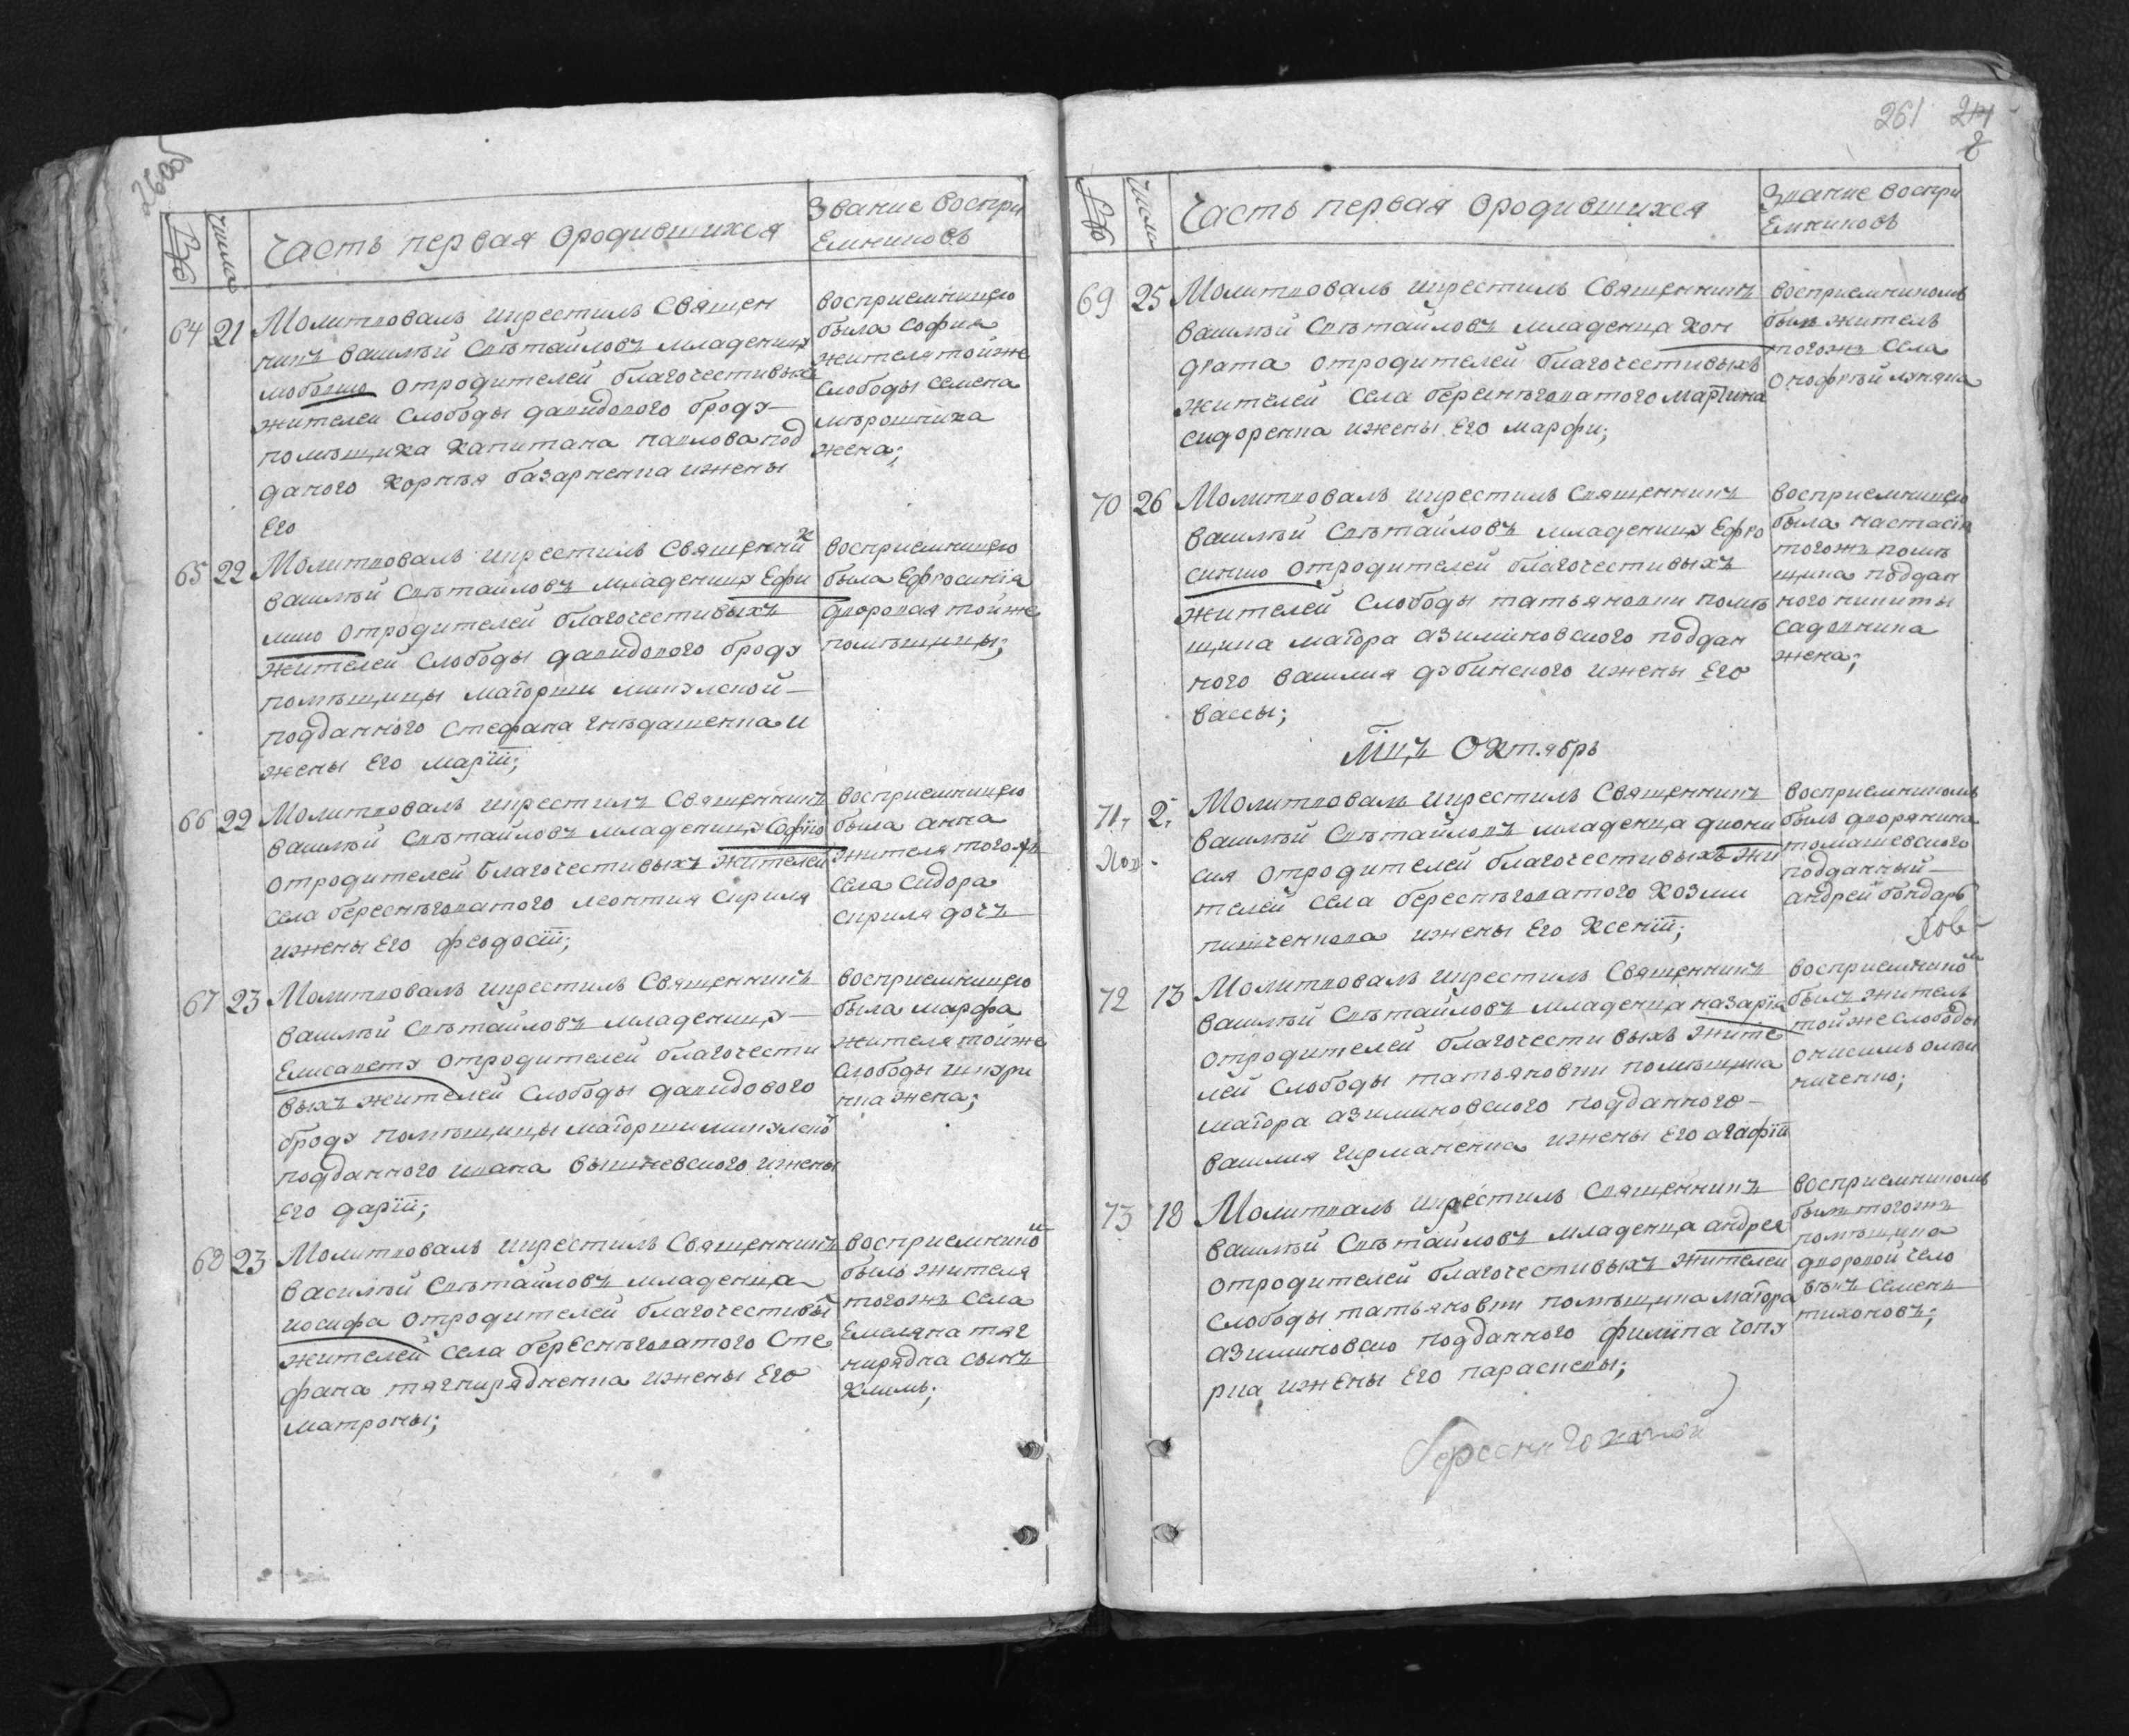 260об
Числа
Часть первая ородившихся
Звание воспри
Емниковъ
64 21 Молитвовалъ икрестилъ Священ
никъ василий Світайловъ младеницу
любовию отродителей благочестивыхъ
жителей слободы давидового броду
помѣщика Капитана павлова под
даного Корнѣя базарненка ижены
Его
восприемницею
была София
жителя тойже
слободы семена
мѣрошника
жена;
65 22 Молитвовалъ икрестилъ Священник
василий Світайловъ младеницу Ефи
мию отродителей благочестивыхъ
жителей слободы давидового броду
помѣщицы маиорши
подданного стефана гнѣдашенка и
жены Его марїи;
восприемницею
была Ефросинїя
дворовая тойже
помѣщицы;
66 22 Молитвовалъ икрестилъ Священникъ
василий Світайловъ младеницу Софїю
отродителей благочестивыхъ жителей
села береснѣговатого леонтия скриля
ижены Его феодосїи;
восприемницею
была анна
жителя тогожъ
села сидора
скриля дочъ
67 23 Молитвовалъ икрестилъ Священникъ
василий Світайловъ младеницу
Елисавету отродителей благочести
выхъ жителей слободы давидового
броду помѣщицы маиорши
подданного ивана вышневского ижены
Его дарїи;
восприемницею
была марфа
жителя тойже
слободы
жена;
68 23 Молитвовалъ икрестилъ Священникъ
василий Світайловъ младенца
иосифа отродителей благочестивый
жителей села береснѣговатого Сте
фана тягнирядненка ижены Его
матроны;
восприемником
былъ жителя
тогожъ села
Емеляна тяг
нирядна сынъ
Климъ;
261 241
Числа
Часть первая ородившихся
Звание воспри
Емниковъ
69 25 Молитвовалъ икрестилъ Священникъ
василий Світайловъ младенца Кон
драта отродителей благочестивыхъ
жителей села береснѣговатого мартина
сидоренка ижены Его марфи;
восприемникомъ
былъ житель
тогожъ села
онофрий
70 26 Молитвовалъ икрестилъ Священникъ
василий Світайловъ младеницу Ефро
синию отродителей благочестивыхъ
жителей слободы татьяновки помѣ
щика маиора акимовского поддан
ного василия дубинского ижены Его
вассы;
восприемницею
была настасїя
тогожъ помѣ
щика поддан
ного никиты
садовника
жена;
Мцъ Октябрь
71 2 Молитвовалъ икрестилъ Священникъ
василий Світайловъ младенца диони
сия отродителей благочестивыхъ жи
телей села береснѣговатого Козми
ижены Его Ксенїи;
восприемникомъ
былъ дворянина
томашевского
подданный
андрей бондарь
72 13 Молитвовалъ икрестилъ Священникъ
василий Світайловъ младенца назарїя
отродителей благочестивыхъ жите
лей слободы татьяновки помѣщика
маиора акимовского подданного
василия ижены Его агафїи
восприемником
былъ житель
тойже слободы
онисимъ
73 18 Молитвалъ икрестилъ Священникъ
василий Світайловъ младенца андрея
отродителей благочестивыхъ жителей
слободы татьяновки помѣщика маиора
подданного филипа
ижены Его параскевы;
восприемникомъ
былъ тогожъ
помѣщика
дворовой чело
вѣкъ Семенъ
тихоновъ;